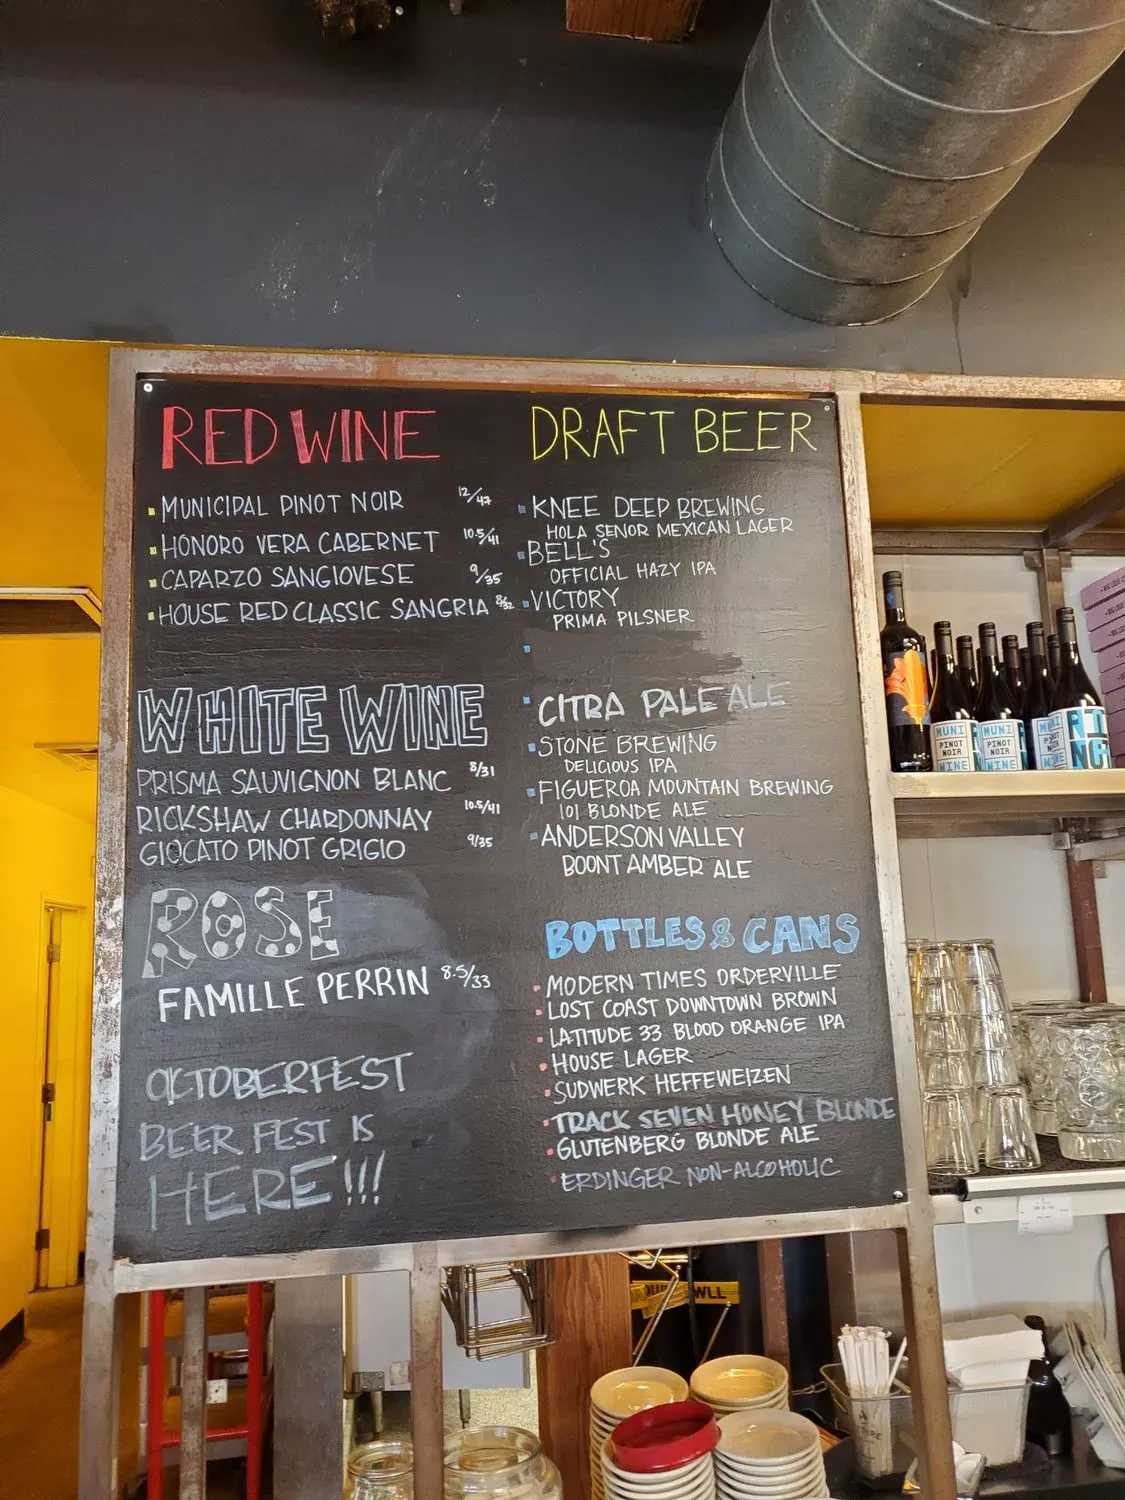 RED WINE
MUNICIPAL PINOT NOIR 12/47
HONORO VERA CABERNET 10.5/41
CAPARZO SANGIOVESE 9/35
HOUSE RED CLASSIC SANGRIA 8/32
WHITE WINE
PRISMA SAUVIGNON BLANC 8/31
RICKSHAW CHARDONNAY 10.5/41
GIOCATO PINOT GRIGIO 9/35
ROSE
FAMILLE PERRIN 8.5/33
OKTOBERFEST
BEER FEST IS
HERE!!!
DRAFT BEER
KNEE DEEP BREWING
HOLA SENOR MEXICAN LAGER
BELL'S
OFFICIAL HAZY IPA
VICTORY
PRIMA PILSNER
CITRA PALE ALE
STONE BREWING
DELICIOUS IPA
FIGUEROA MOUNTAIN BREWING
101 BLONDE ALE
ANDERSON VALLEY
BOONT AMBER ALE
BOTTLES & CANS
MODERN TIMES ORDERVILLE
LOST COAST DOWNTOWN BROWN
LATITUDE 33 BLOOD ORANGE IPA
HOUSE LAGER
SUDWERK HEFFEWEIZEN
TRACK SEVEN HONEY BLONDE
GLUTENBERG BLONDE ALE
ERDINGER NON-ALCOHOLIC
MUNI
PINOT
NOIR
WINE
MUNI
PINOT
NOIR
WINE